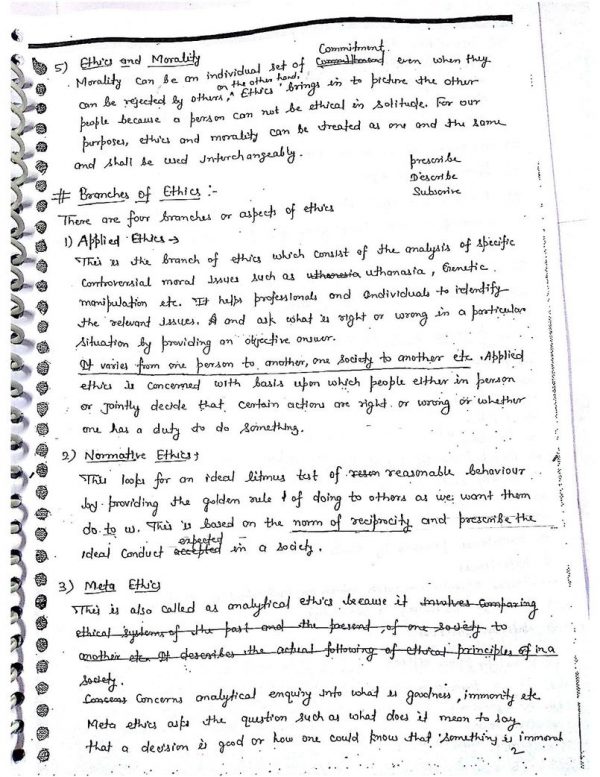 5) Ethics and Morality
Morality can be an individual set of Commitment even when they
can be rejected by others, on the other hand, Ethics brings in to picture the other
people because a person can not be ethical in solitude. For our
purposes, ethics and morality can be treated as one and the same
and shall be used Interchangeably.
prescribe
Describe
Subscrive
# Branches of Ethics :-
There are four branches or aspects of ethics
1) Applied Ethics →
This is the branch of ethics which consist of the analysis of specific
Controversial moral Issues such as uthanasia uthonasia, Genetic
manipulation etc. It helps professionals and Individuals to identify
the relevant issues. A and ask what is right or wrong in a particular
Situation by providing an objective answer.
It varies from one person to another, one society to another etc. Applied
ethics is concerned with basis upon which people either in person
or jointly decide that certain actions are right or wrong or whether
one has a duty to do something.
2) Normative Ethics
This loops for an ideal litmus test of reson reasonable behaviour
by providing the golden rule of doing to others as we want them
do to us. This is based on the norm of reciprocity and prescribe the
ideal Conduct accepted expected in a society.
3) Meta Ethics
This is also called as analytical ethics because it involves Comparing
ethical systems of the past and the present, of one society to
another etc. It describes the actual following of ethical principles of in a
society.
Concerns analytical enquiry into what is goodness, immority etc
Meta ethics asks the question such as what does it mean to say
that a decision is good or how one could know that something is immoral
2